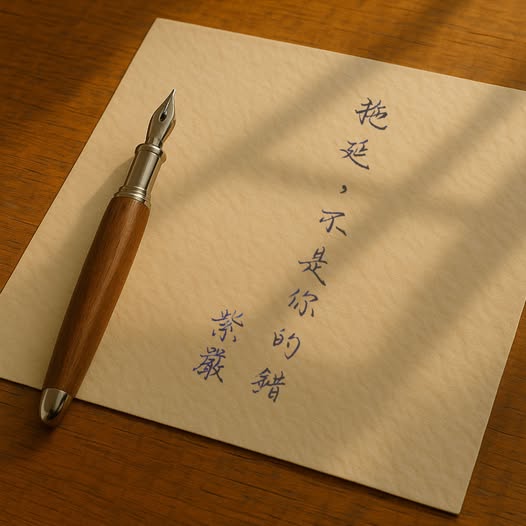 拖延，不是你的錯
紫嚴